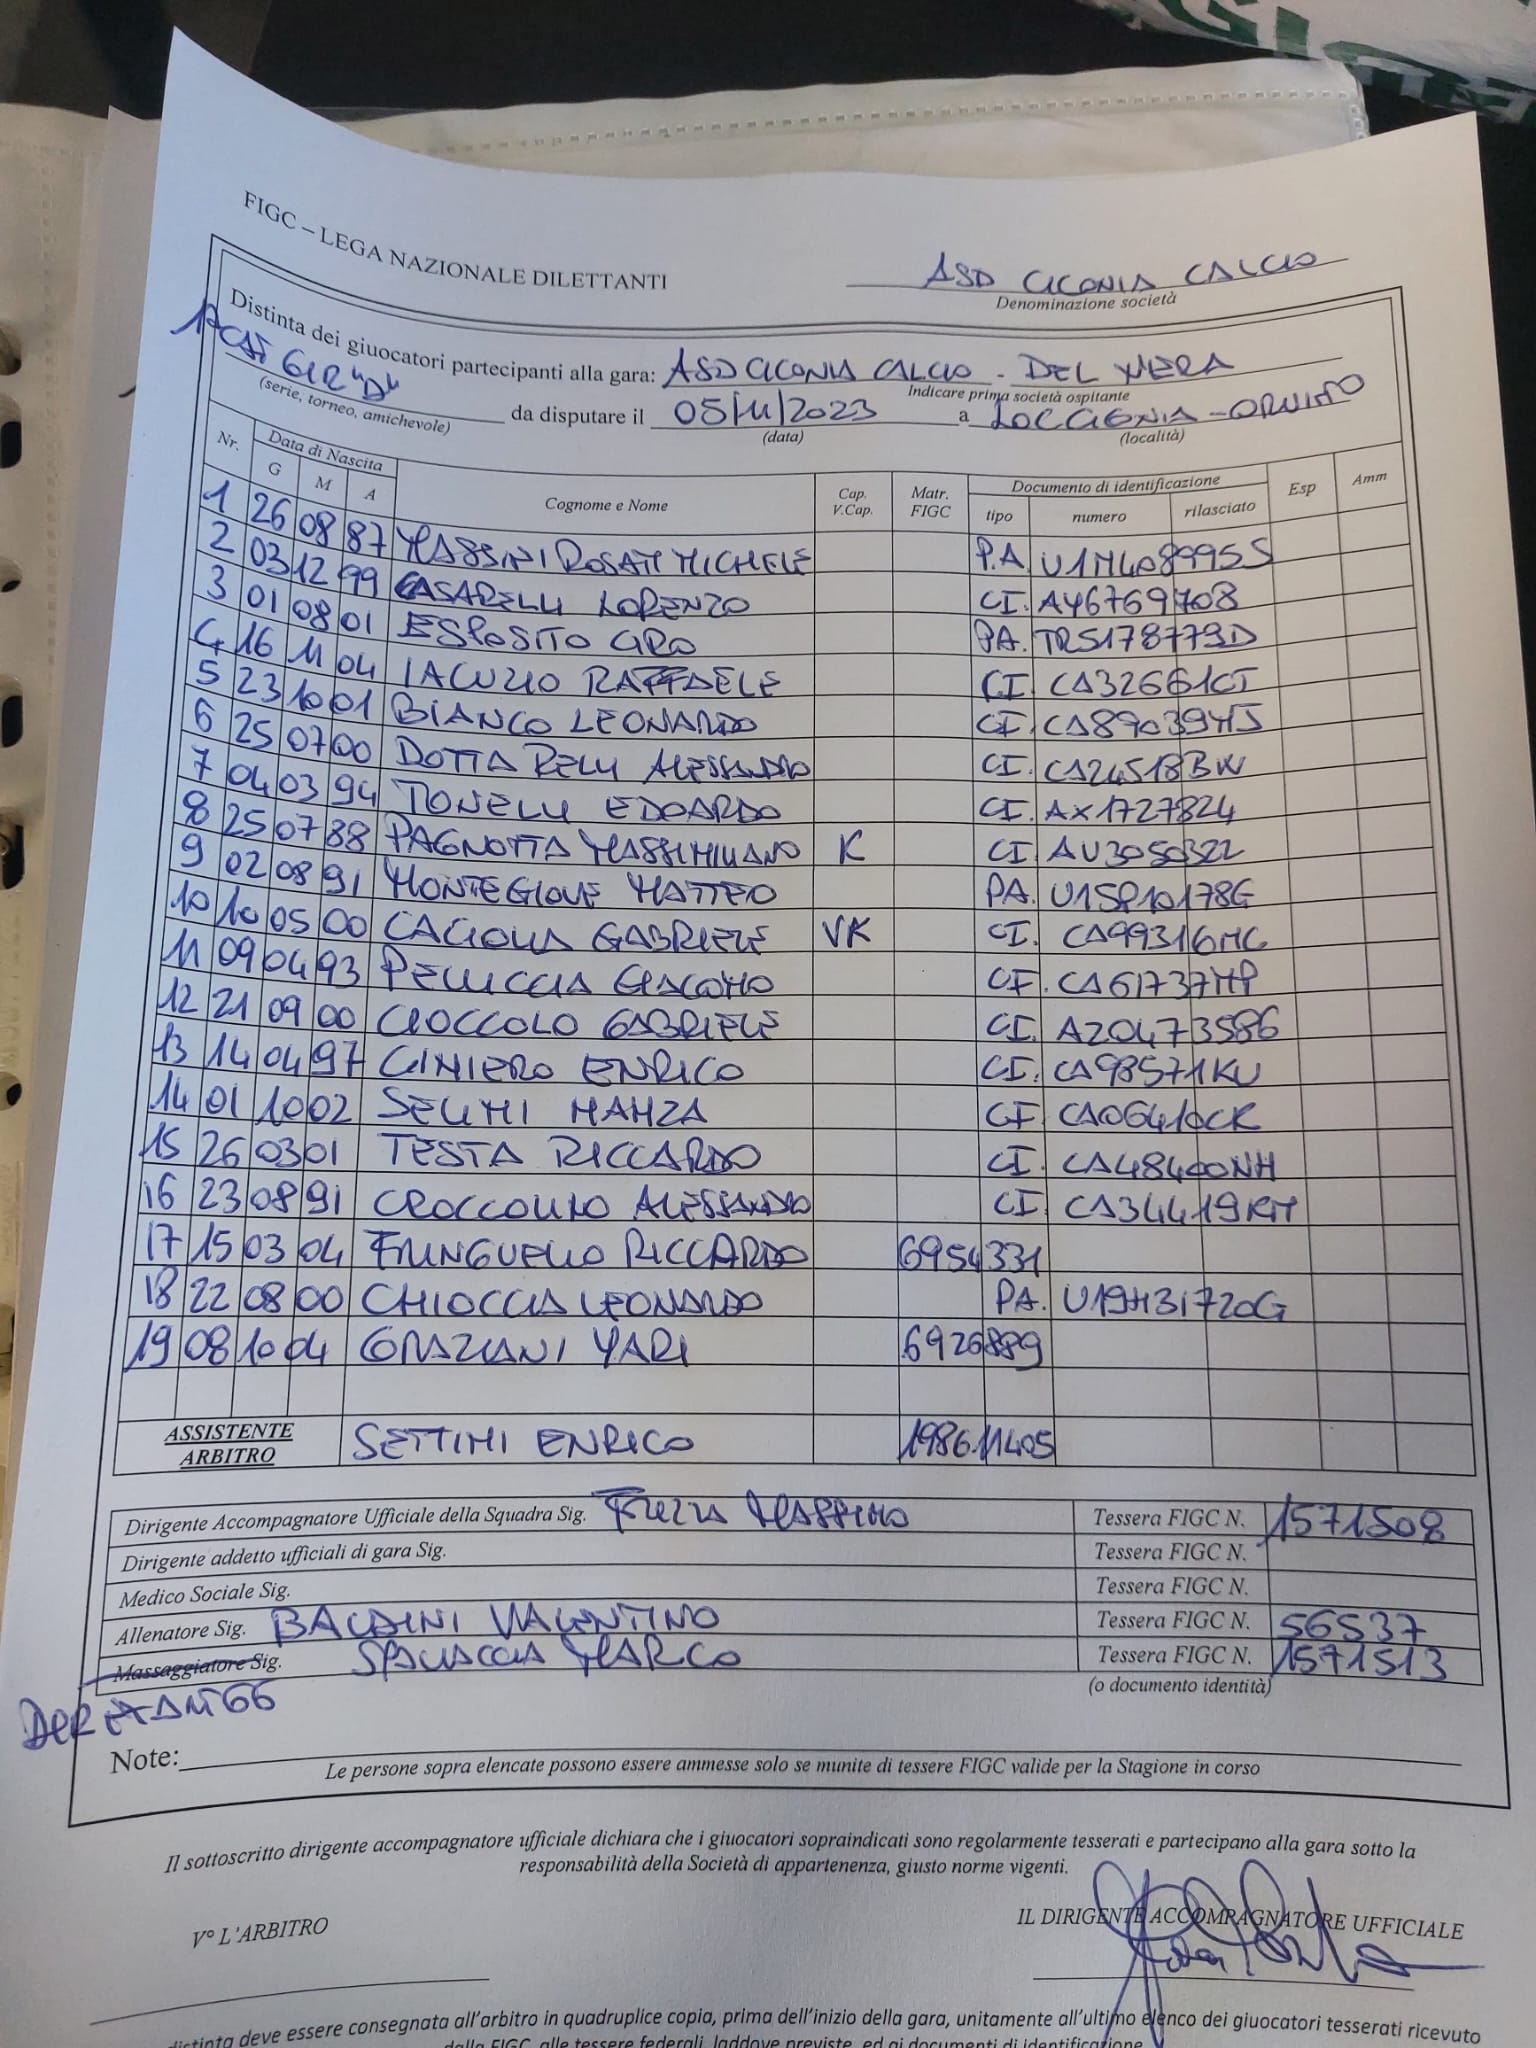 FIGC – LEGA NAZIONALE DILETTANTI
ASD CICONIA CALCIO
Denominazione società
Distinta dei giuocatori partecipanti alla gara: ASD CICONIA CALCIO - DEL NERA
Indicare prima società ospitante
1ª CAT GIR "D" da disputare il 05/11/2023 a LOC CICONIA - ORVIETO
(serie, torneo, amichevole) (data) (località)
Nr. Data di Nascita Cognome e Nome Cap. V.Cap. Matr. FIGC Documento di identificazione Esp Amm
G M A tipo numero rilasciato
1 26 08 87 MASSINI ROSATI MICHELE P.A. U1M408995S
2 03 12 99 CASARELLI LORENZO CI. AY6769708
3 01 08 01 ESPOSITO CIRO PA. TR5178779D
4 16 11 04 IACUZIO RAFFAELE CI. CA32661CT
5 23 10 01 BIANCO LEONARDO CI. CA89039HJ
6 25 07 00 DOTTARELLI ALESSANDRO CI. CA24518BW
7 04 03 94 TONELLI EDOARDO CI. AX1727824
8 25 07 88 PAGNOTTA MASSIMILIANO K CI. AU3050322
9 02 08 91 MONTEGIOVE MATTEO PA. U15P10178G
10 10 05 00 CACIOLLA GABRIELE VK CI. CA99316MC
11 09 04 93 PELLICCIA GIACOMO CI. CA61737MP
12 21 09 00 CIOCCOLO GABRIELE CI. AZ0473586
13 14 04 97 CIMIERO ENRICO CI. CA98571KU
14 01 10 02 SELIMI HAMZA CI. CA06410CR
15 26 03 01 TESTA RICCARDO CI. CA48400NH
16 23 08 91 CROCCOLINO ALESSANDRO CI. CA34419RM
17 15 03 04 FRINGUELLO RICCARDO 6954331
18 22 08 00 CHIOCCIA LEONARDO PA. U19H31720G
19 08 10 04 GRAZIANI YARI 6926889
ASSISTENTE ARBITRO SETTIMI ENRICO 1986.11405
Dirigente Accompagnatore Ufficiale della Squadra Sig. MASSIMO Tessera FIGC N. 1571508
Dirigente addetto ufficiali di gara Sig. Tessera FIGC N.
Medico Sociale Sig. Tessera FIGC N.
Allenatore Sig. BALDINI VALENTINO Tessera FIGC N. 56537
Massaggiatore Sig. SPACIACCIA MARCO Tessera FIGC N. 1571513
(o documento identità)
Note:
Le persone sopra elencate possono essere ammesse solo se munite di tessere FIGC valide per la Stagione in corso
Il sottoscritto dirigente accompagnatore ufficiale dichiara che i giuocatori sopraindicati sono regolarmente tesserati e partecipano alla gara sotto la
responsabilità della Società di appartenenza, giusto norme vigenti.
V° L'ARBITRO IL DIRIGENTE ACCOMPAGNATORE UFFICIALE
distinta deve essere consegnata all'arbitro in quadruplice copia, prima dell'inizio della gara, unitamente all'ultimo elenco dei giuocatori tesserati ricevuto
dalla FIGC, alle tessere federali, laddove previste, ed ai documenti di identificazione